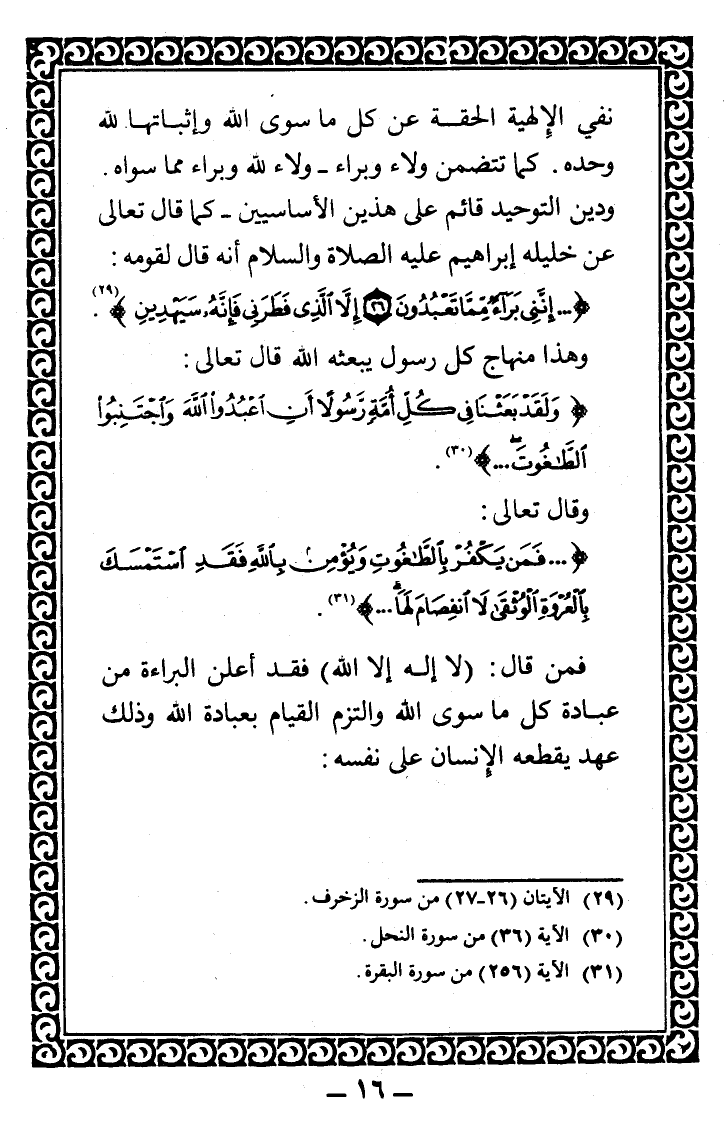 نفي الإلهية الحقـة عن كل ما سوى الله وإثبـاتهـا لله
وحده. كما تتضمن ولاء وبراء ـ ولاء لله وبراء مما سواه.
ودين التوحيد قائم على هذين الأساسيين ـ كما قال تعالى
عن خليله إبراهيم عليه الصلاة والسلام أنه قال لقومه:
﴿... إِنَّنِى بَرَآءٌ مِّمَّا تَعْبُدُونَ ٢٦ إِلَّا ٱلَّذِى فَطَرَنِى فَإِنَّهُۥ سَيَهْدِينِ﴾(٢٩).
وهذا منهاج كل رسول يبعثه الله قال تعالى:
﴿وَلَقَدْ بَعَثْنَا فِى كُلِّ أُمَّةٍ رَّسُولًا أَنِ ٱعْبُدُوا۟ ٱللَّهَ وَٱجْتَنِبُوا۟
ٱلطَّٰغُوتَۖ...﴾(٣٠).
وقال تعالى:
﴿... فَمَن يَكْفُرْ بِٱلطَّٰغُوتِ وَيُؤْمِنۢ بِٱللَّهِ فَقَدِ ٱسْتَمْسَكَ
بِٱلْعُرْوَةِ ٱلْوُثْقَىٰ لَا ٱنفِصَامَ لَهَاۗ...﴾(٣١).
فمن قال: (لا إلـه إلا الله) فقـد أعلن البراءة من
عبـادة كل ما سوى الله والتزم القيام بعبادة الله وذلك
عهد يقطعه الإنسان على نفسه:
(٢٩) الأيتان (٢٦-٢٧) من سورة الزخرف.
(٣٠) الأية (٣٦) من سورة النحل.
(٣١) الأية (٢٥٦) من سورة البقرة.
ـ ١٦ ـ